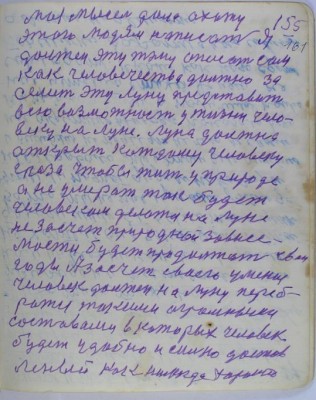 моя мысль дала охоту 155
этого людям написать Я
должен эту тему описать сам
Как человечество должно за
селить эту луну представить
всю возможность у жизни чело-
веку на Луне. Луна должна
открыть каждому человеку
глаза чтобы жить у природе
а не умерать так будет
человеком делаться на Луне
не за счет природной зависи-
мости будет продолжать свои
годы А за счет своего умения
человек должен на луну переб-
раться такими огромными
составами в которых человек
будет удобно и сильно достав
ленный как никогда хорошо